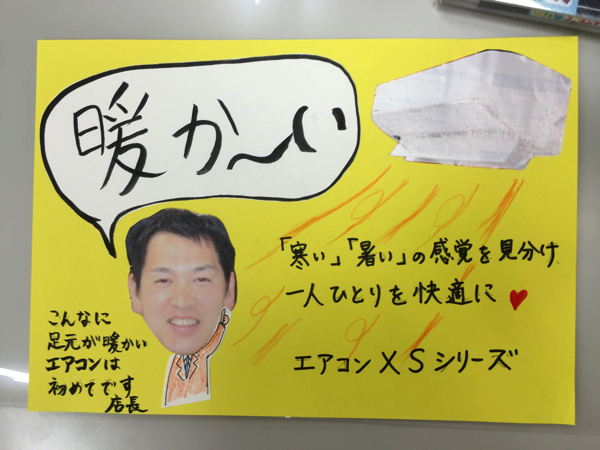 暖か〜い
「寒い」「暑い」の感覚を見分け
一人ひとりを快適に♥
エアコンXSシリーズ
こんなに
足元が暖かい
エアコンは
初めてです
店長